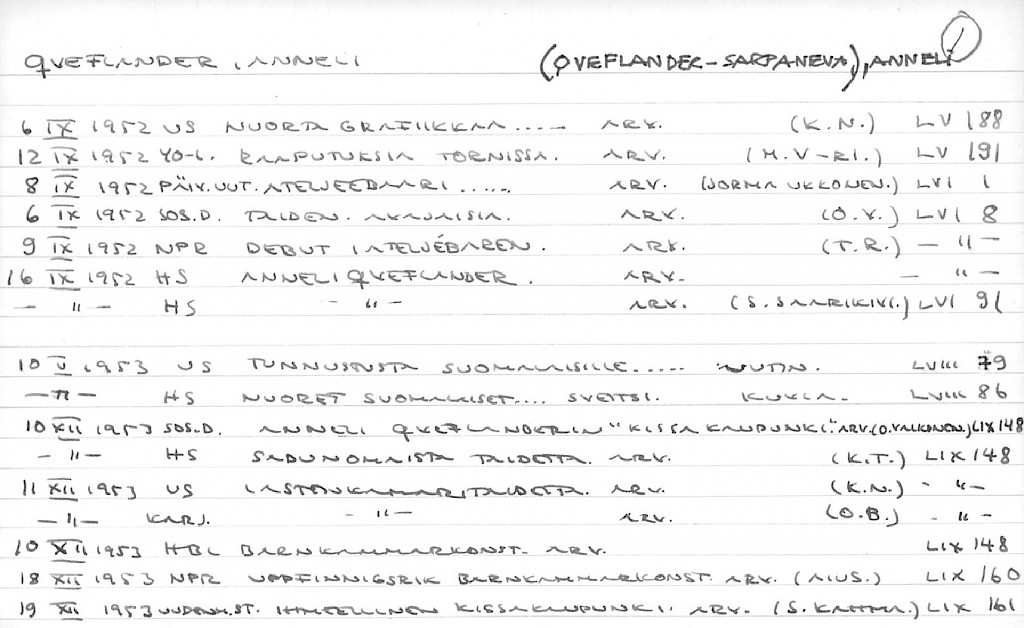 QVEFLANDER, ANNELI (QVEFLANDER-SARPANEVA), ANNELI 1
6 IX 1952 US NUORTA GRAFIIKKAA..... ARV. (K.N.) LV 188
12 IX 1952 YO-L. RAAPUTUKSIA TORNISSA. ARV. (M.V-RI.) LV 191
8 IX 1952 PÄIV.UUT. ATELJEEBAARI...... ARV. (JORMA UKKONEN.) LVI 1
6 IX 1952 SOS.D. TAIDEN. AVAJAISIA. ARV. (O.V.) LVI 8
9 IX 1952 NPR DEBUT I ATELJÉBAREN. ARV. (T.R.) — " —
16 IX 1952 HS ANNELI QVEFLANDER. ARV. — " —
— " — HS — " — ARV. (S. SAARIKIVI.) LVI 91
10 V 1953 US TUNNUSTUSTA SUOMALAISILLE..... UUTIN. LVIII 79
— " — HS NUORET SUOMALAISET.... SVEITSI. KUVIA. LVIII 86
10 XII 1953 SOS.D. ANNELI QVEFLANDERIN "KISSAKAUPUNKI." ARV. (O. VALKONEN.) LIX 148
— " — HS SADUNOMAISTA TAIDETTA. ARV. (K.T.) LIX 148
11 XII 1953 US LASTENKAMARITAIDETTA. ARV. (K.N.) - " —
— " — KARJ. - " — ARV. (O.B.) - " —
10 XII 1953 HBL BARNKAMMARKONST. ARV. LIX 148
18 XII 1953 NPR UPPFINNIGSRIK BARNKAMMARKONST. ARV. (AIUS.) LIX 160
19 XII 1953 UUDENM.ST. IHMEELLINEN KISSAKAUPUNKI. ARV. (S. KAHMA.) LIX 161